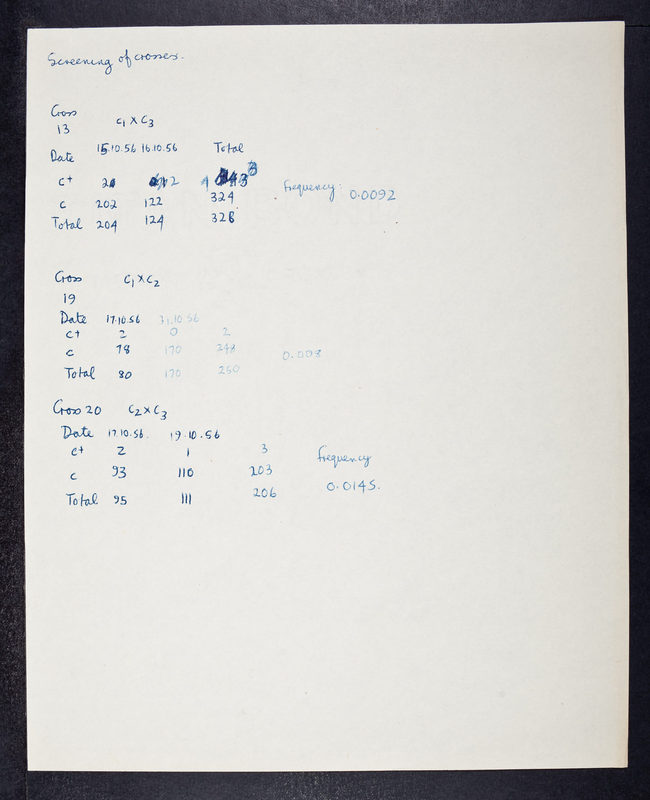 Screening of crosses.
Cross
13 c1 x c3
Date 15.10.56 16.10.56 Total
c+ 2 2 3
c 202 122 324 Frequency: 0.0092
Total 204 124 328
Cross c1 x c2
19
Date 17.10.56 31.10.56
c+ 2 0 2
c 78 170 248 0.008
Total 80 170 250
Cross 20 c2 x c3
Date 17.10.56. 19.10.56
c+ 2 1 3 frequency
c 93 110 203
Total 95 111 206 0.0145.